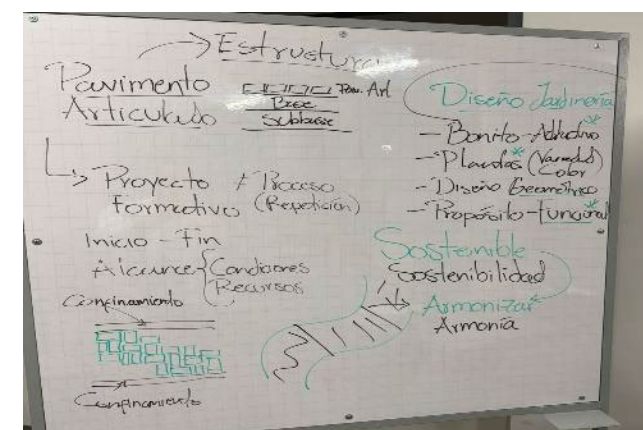 Estructura
Pavimento
Articulado
Pav. Art
Base
Subbase
Proyecto ≠ Proceso
formativo (Repetición)
Inicio - Fin
Alcance { Condiciones
Recursos
Confinamiento
Confinamiento
Diseño Jardinería
- Bonito - Atractivo*
- Plantas* (Variedad)
Color
- Diseño Geométrico
- Propósito - Funcional*
Sostenible
Sostenibilidad
Armonizar
Armonía